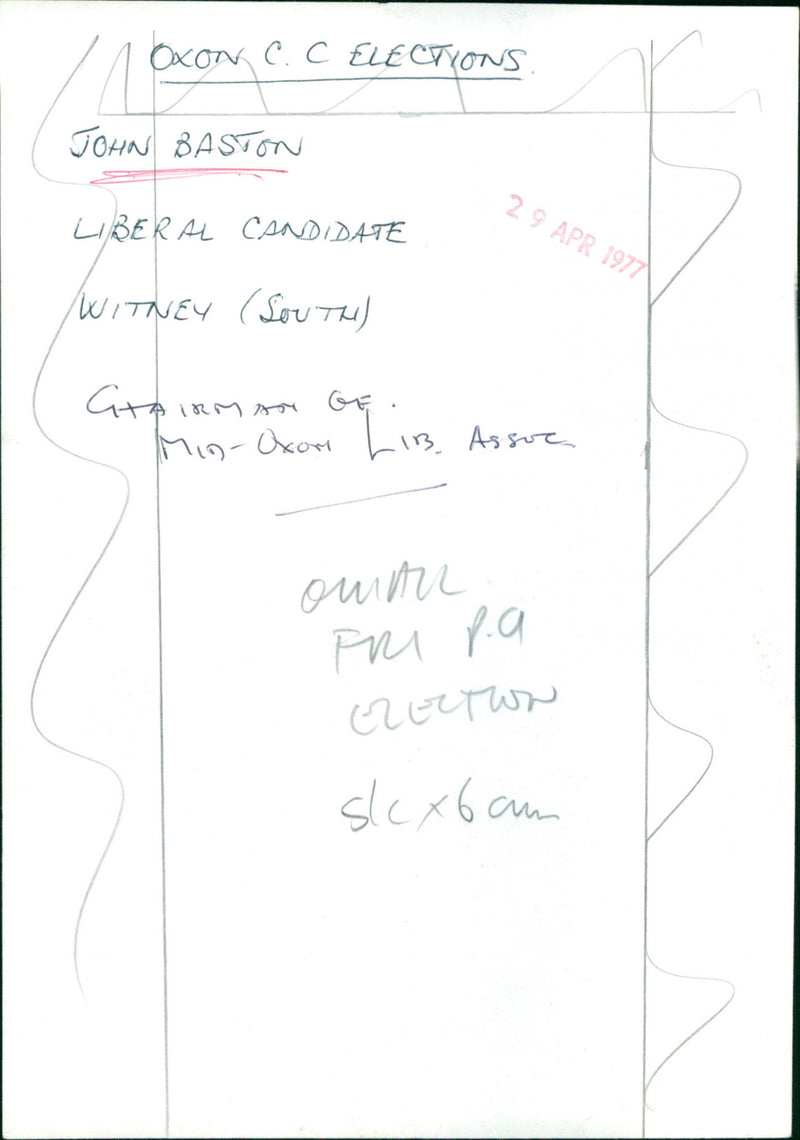 OXON C. C ELECTIONS.
JOHN BASTON
29 APR 1977
LIBERAL CANDIDATE
WITNEY (SOUTH)
CHAIRMAN OF.
MID-OXON LIB. ASSOC
FRI P.9
ELECTION
S/C x 6 cm